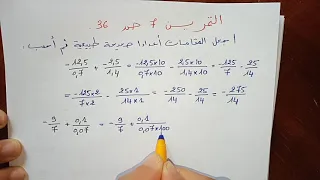 التمرين 7 ص 36.
اجعل المقامات أعدادا صحيحة طبيعية ثم أحسب.
-12,5/0,7 + -2,5/1,4 = -12,5×10/0,7×10 - 2,5×10/1,4×10 = -125/7 - 25/14
= -125×2/7×2 - 25×1/14×1 = -250/14 - 25/14 = -275/14
-9/7 + 0,1/0,07 = -9/7 + 0,1/0,07×100